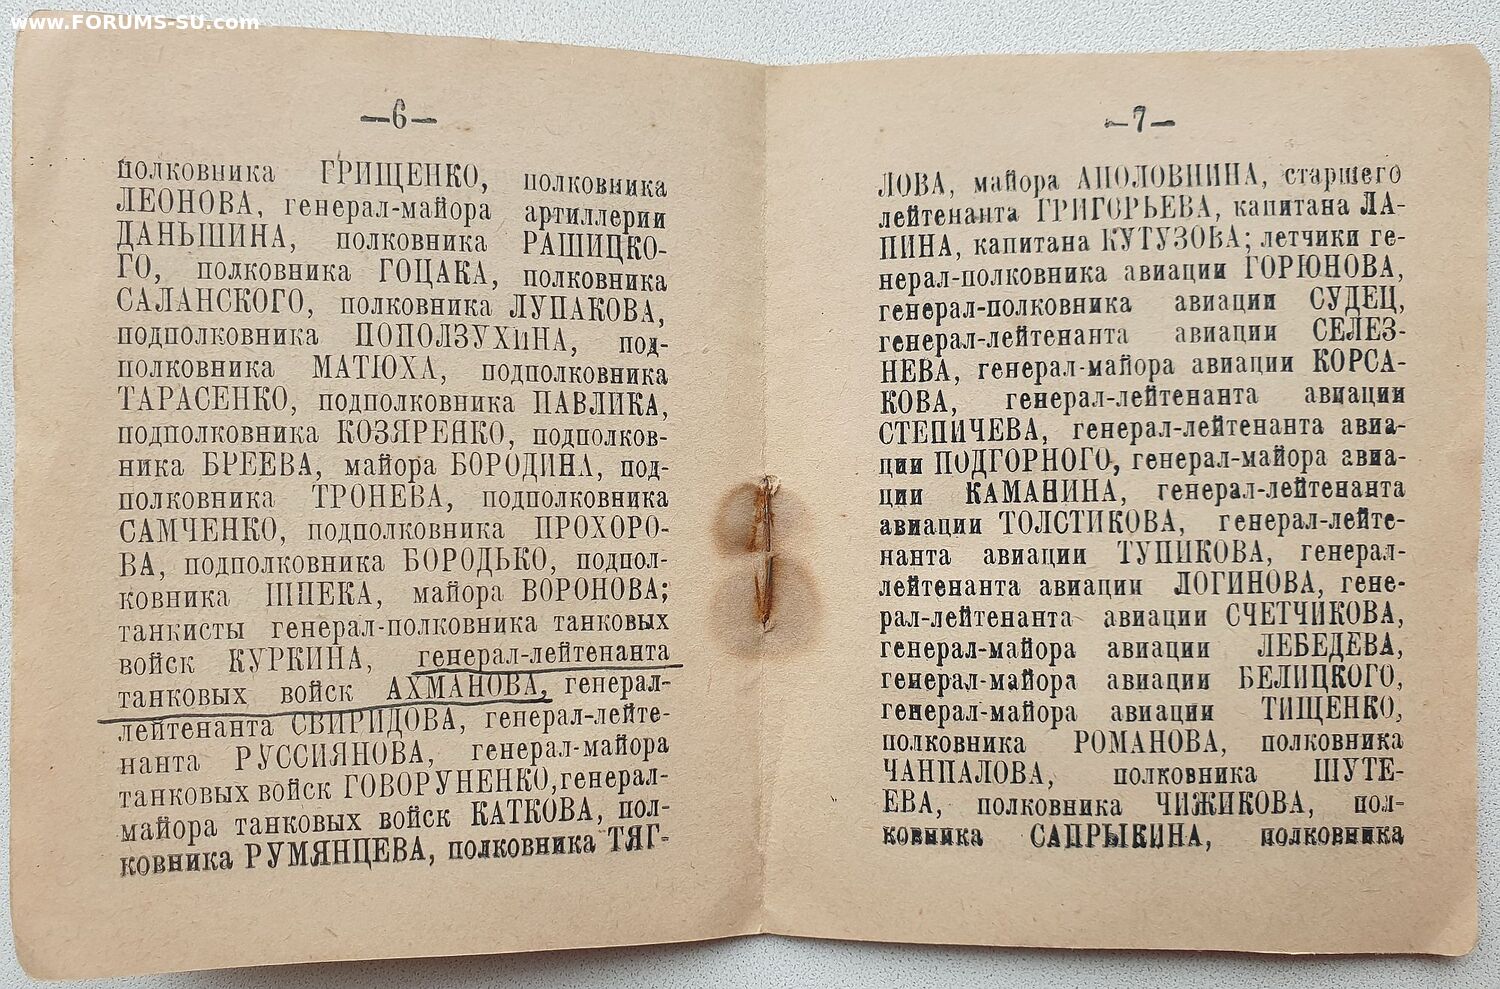 www.FORUMS-SU.com
—6—
полковника ГРИЩЕНКО, полковника
ЛЕОНОВА, генерал-майора артиллерии
ДАНЬШИНА, полковника РАШИЦКО-
ГО, полковника ГОЦАКА, полковника
САЛАНСКОГО, полковника ЛУПАКОВА,
подполковника ПОПОЛЗУХИНА, под-
полковника МАТЮХА, подполковника
ТАРАСЕНКО, подполковника ПАВЛИКА,
подполковника КОЗЯРЕНКО, подполков-
ника БРЕЕВА, майора БОРОДИНА, под-
полковника ТРОНЕВА, подполковника
САМЧЕНКО, подполковника ПРОХОРО-
ВА, подполковника БОРОДЬКО, подпол-
ковника ШПЕКА, майора ВОРОНОВА;
танкисты генерал-полковника танковых
войск КУРКИНА, генерал-лейтенанта
танковых войск АХМАНОВА, генерал-
лейтенанта СВИРИДОВА, генерал-лейте-
нанта РУССИЯНОВА, генерал-майора
танковых войск ГОВОРУНЕНКО, генерал-
майора танковых войск КАТКОВА, пол-
ковника РУМЯНЦЕВА, полковника ТЯГ-
—7—
ЛОВА, майора АПОЛОВНИНА, старшего
лейтенанта ГРИГОРЬЕВА, капитана ЛА-
ПИНА, капитана КУТУЗОВА; летчики ге-
нерал-полковника авиации ГОРЮНОВА,
генерал-полковника авиации СУДЕЦ,
генерал-лейтенанта авиации СЕЛЕЗ-
НЕВА, генерал-майора авиации КОРСА-
КОВА, генерал-лейтенанта авиации
СТЕПИЧЕВА, генерал-лейтенанта авиа-
ции ПОДГОРНОГО, генерал-майора авиа-
ции КАМАНИНА, генерал-лейтенанта
авиации ТОЛСТИКОВА, генерал-лейте-
нанта авиации ТУПИКОВА, генерал-
лейтенанта авиации ЛОГИНОВА, гене-
рал-лейтенанта авиации СЧЕТЧИКОВА,
генерал-майора авиации ЛЕБЕДЕВА,
генерал-майора авиации БЕЛИЦКОГО,
генерал-майора авиации ТИЩЕНКО,
полковника РОМАНОВА, полковника
ЧАНПАЛОВА, полковника ШУТЕ-
ЕВА, полковника ЧИЖИКОВА, пол-
ковника САПРЫКИНА, полковника